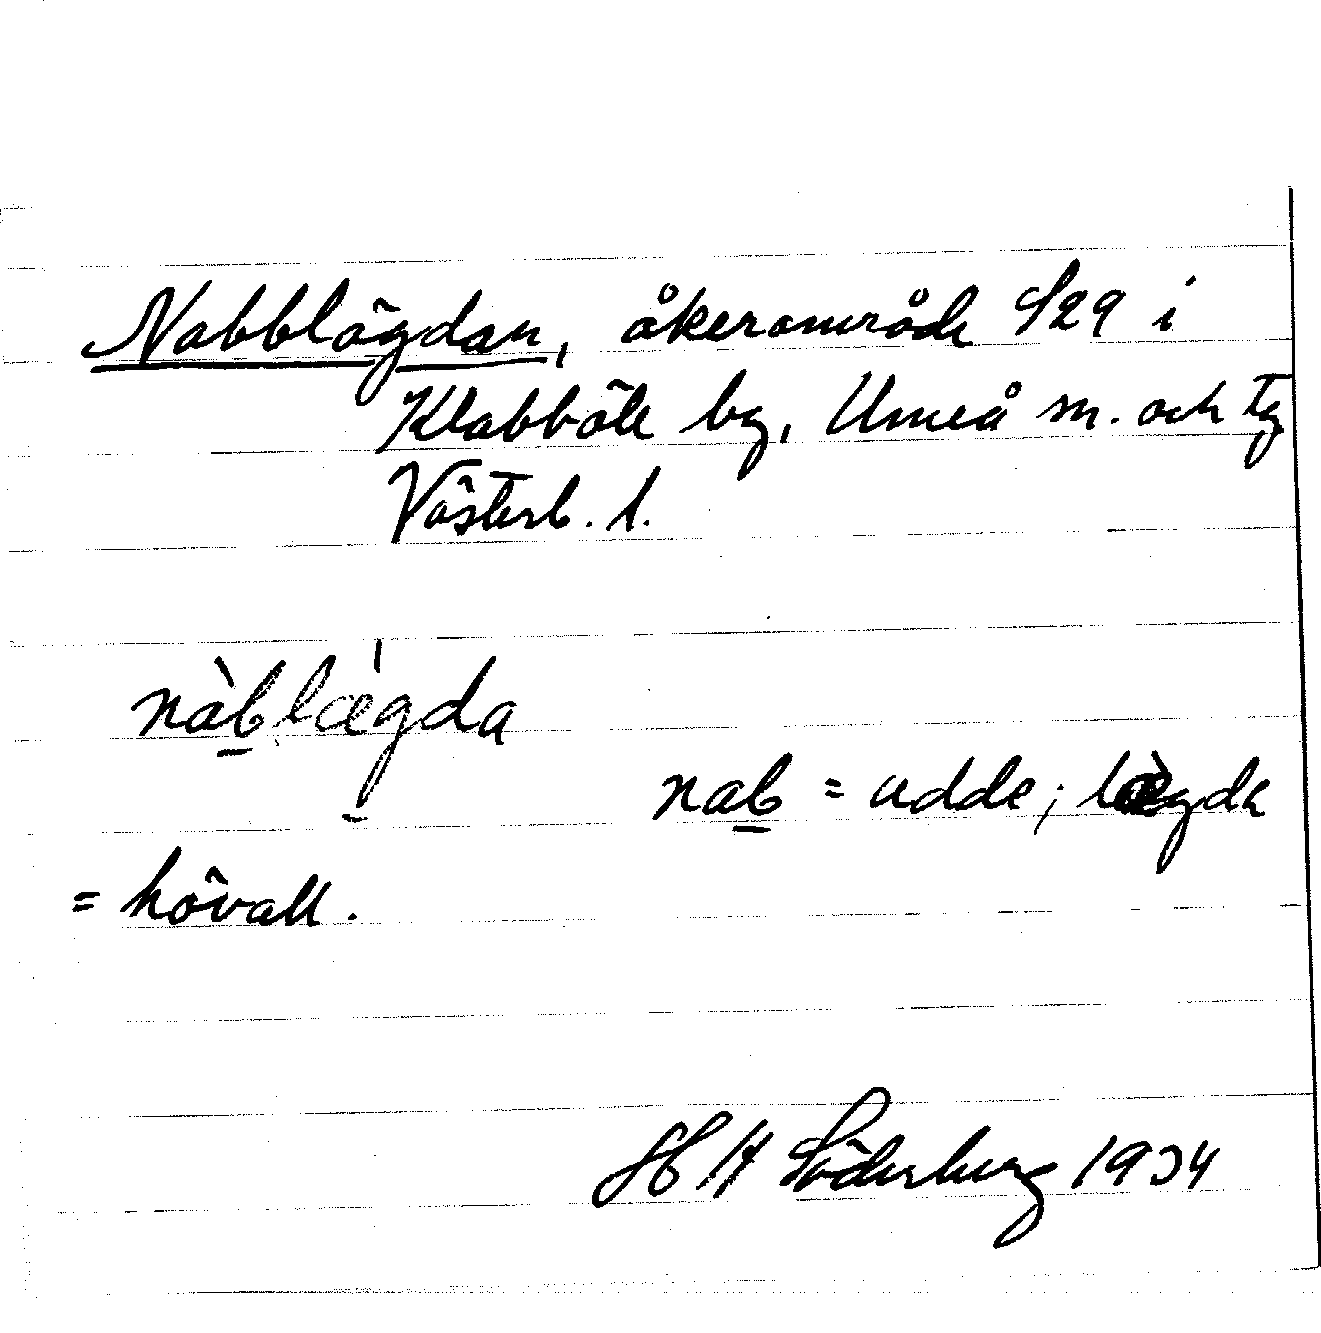 Nabblägdan, åkerområde 829 i
Klabböle by, Umeå sn. och tg
Västerb. l.
nàblǽgda
nab = udde; lægda
= hövall.
H H Söderberg 1934